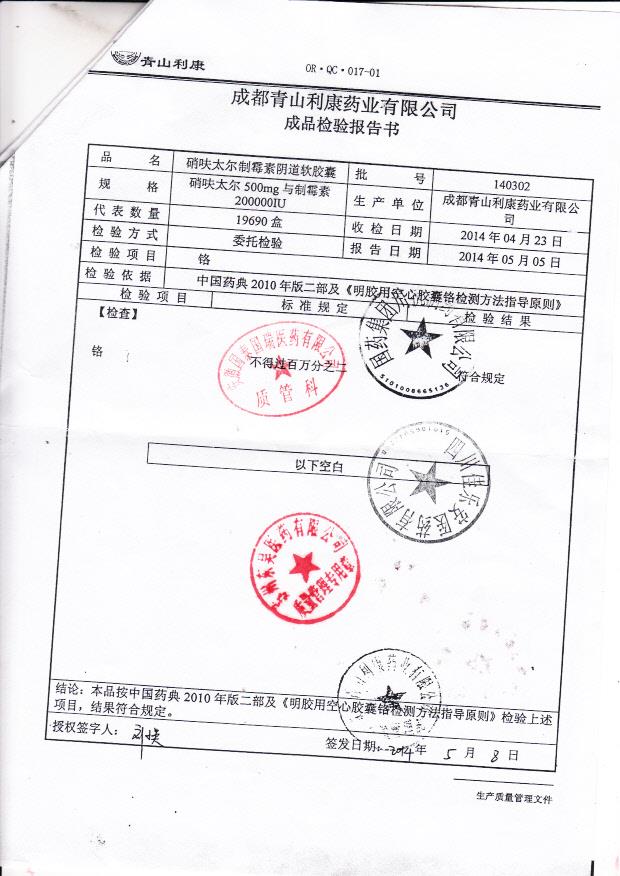 青山利康
OR·QC·017-01
成都青山利康药业有限公司
成品检验报告书
品 名 硝呋太尔制霉素阴道软胶囊 批 号 140302
规 格 硝呋太尔 500mg 与制霉素 200000IU 生产单位 成都青山利康药业有限公司
代表数量 19690 盒 收检日期 2014 年 04 月 23 日
检验方式 委托检验 报告日期 2014 年 05 月 05 日
检验项目 铬
检验依据 中国药典 2010 年版二部及《明胶用空心胶囊铬检测方法指导原则》
检验项目 标准规定 检验结果
【检查】
铬 不得过百万分之二 符合规定
国药集团 有限公司
5101008665136
国瑞医药有限公司
质管科
以下空白
四川佳乐安医药有限公司
东吴医药有限公司
质量管理专用章
利康药业有限公司
结论：本品按中国药典 2010 年版二部及《明胶用空心胶囊铬检测方法指导原则》检验上述
项目，结果符合规定。
授权签字人：
签发日期: 2014 年 5 月 8 日
生产质量管理文件